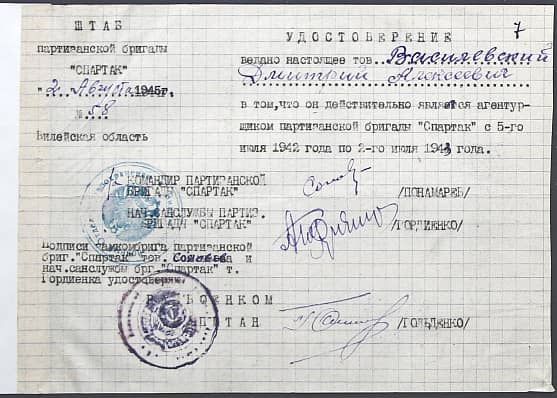 7
ШТАБ
партизанской бригады
"СПАРТАК"
"2" Августа 1945г.
№ 58
Вилейская область
УДОСТОВЕРЕНИЕ
выдано настоящее тов. Василевский
Дмитрий Алексеевич
в том, что он действительно является агентур-
щиком партизанской бригады "Спартак" с 5-го
июля 1942 года по 2-го июля 1943 года.
КОМАНДИР ПАРТИЗАНСКОЙ
БРИГАДЫ "СПАРТАК" /ПОНАМАРЕВ/
НАЧ.САНСЛУЖБЫ ПАРТИЗ.
БРИГАДЫ "СПАРТАК" /ГОРДИЕНКО/
Подписи замкомбрига партизанской
бриг."Спартак" тов. и
нач.санслужбы брг."Спартак" т.
Гордиенка удостоверяю
ВОЕНКОМ
/ГОЛЬДЕНКО/